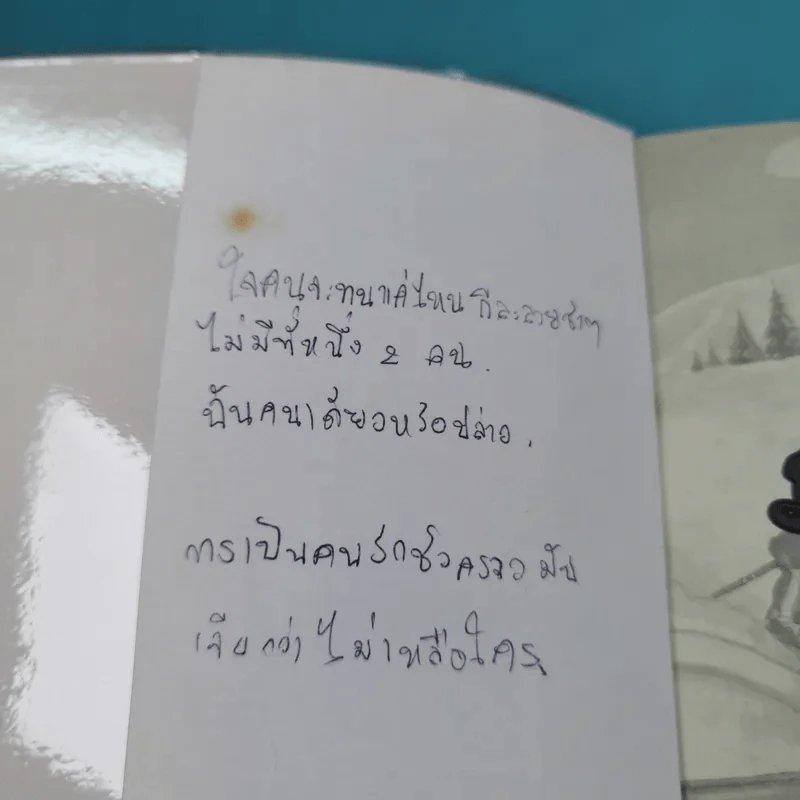 ใจคนจะทนแค่ไหน ก็ละลายช้าๆ
ไม่มีที่หนึ่ง 2 คน.
ฉันคนเดียวหรือปล่าว.
การเป็นคนรักชั่วคราว มัน
เจ็บกว่าไม่เหลือใคร